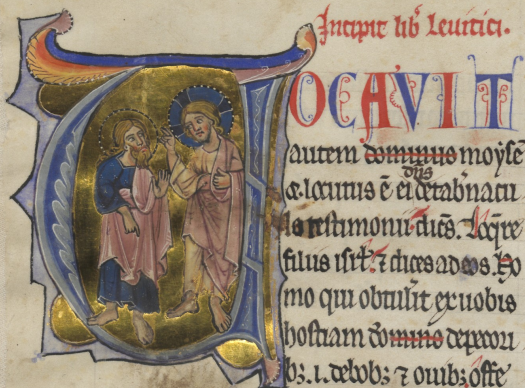 Incipit lib̄ Leuitici.
VOCAVIT
autem dominus moẏsē
dn̄s
⁊ locutus ē ei de tab̄nacu
lo testimonii dicēs. Loq̄re
filiis isrł. ⁊ dices ad eos. Ho
mo qui obtulit̄ ex uobis
hostiam domino de pecori
bꝫ .i. de bobꝫ ⁊ ouibꝫ offe